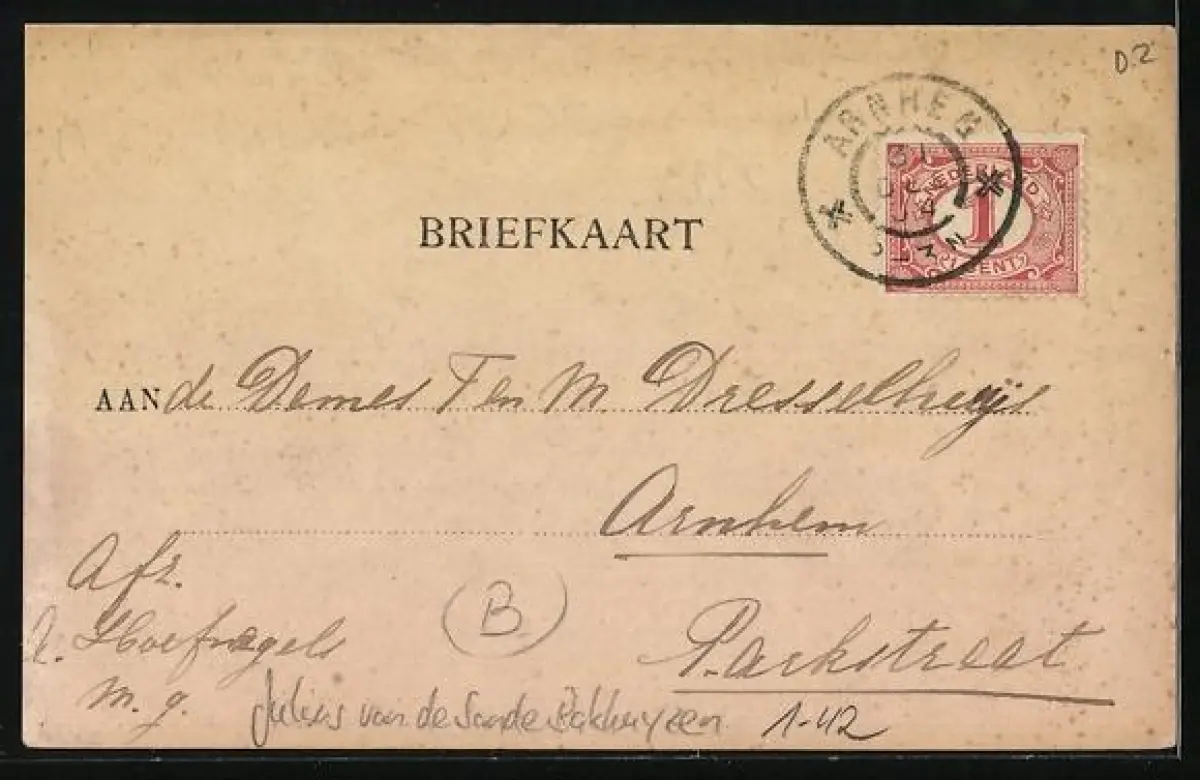 D.2
ARNHEM
31
2-3 N
NEDERLAND
1
CENT
BRIEFKAART
AAN de Dames T en M. Dresselhuijs
Arnhem
Afz.
(B)
Parkstraat
m. g.
Julius van de Sande Bakhuyzen 1-42